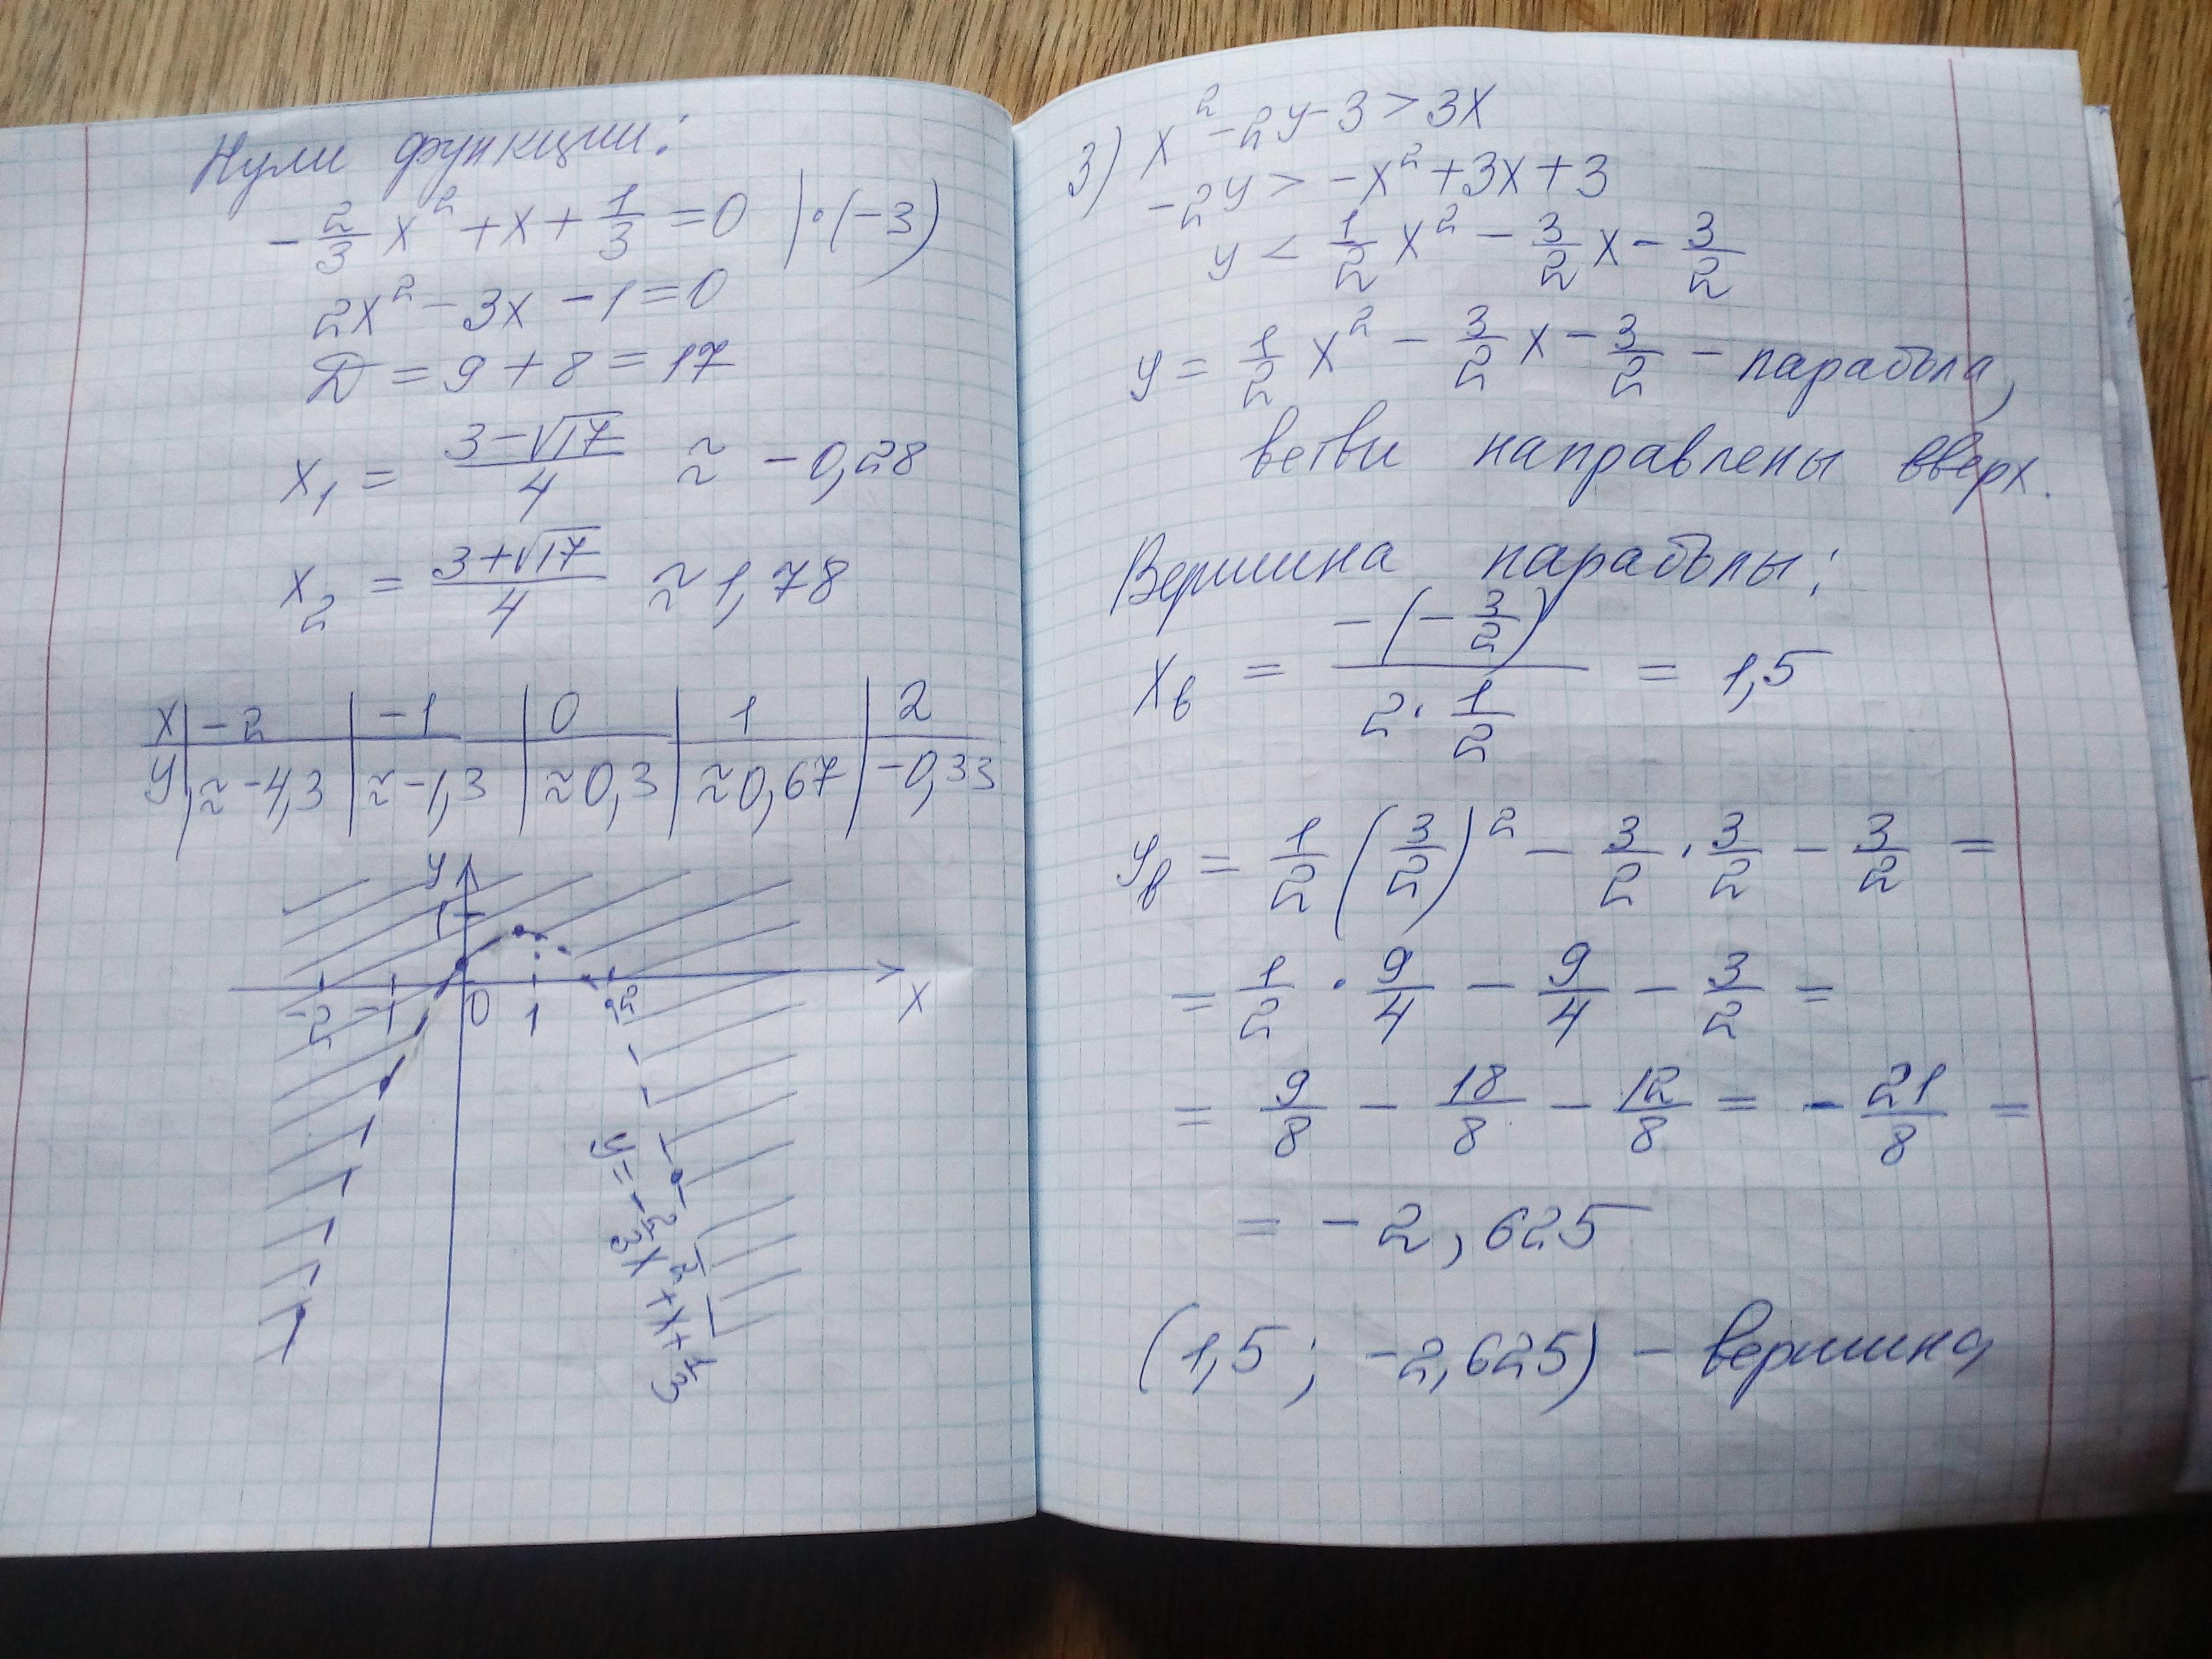 Нули функции:
-2/3 x² + x + 1/3 = 0 |·(-3)
2x² - 3x - 1 = 0
D = 9 + 8 = 17
x₁ = (3-√17)/4 ≈ -0,28
x₂ = (3+√17)/4 ≈ 1,78
x | -2 | -1 | 0 | 1 | 2
y | ≈-4,3 | ≈-1,3 | ≈0,3 | ≈0,67 | -0,33
y
1
-2 -1 0 1 2 x
y = -2/3 x² + x + 1/3
3) x² - 2y - 3 > 3x
-2y > -x² + 3x + 3
y < 1/2 x² - 3/2 x - 3/2
y = 1/2 x² - 3/2 x - 3/2 - парабола,
ветви направлены вверх.
Вершина параболы:
xв = -(-3/2)/(2·1/2) = 1,5
yв = 1/2 (3/2)² - 3/2 · 3/2 - 3/2 =
= 1/2 · 9/4 - 9/4 - 3/2 =
= 9/8 - 18/8 - 12/8 = -21/8 =
= -2,625
(1,5; -2,625) - вершина